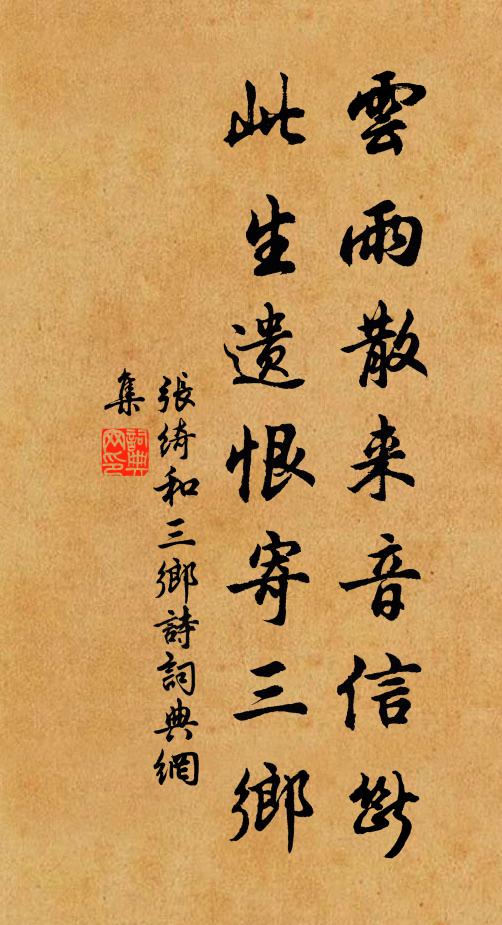 雲雨散来音信斷
此生遺恨寄三鄉
張綺和三鄉詩詞典網
集
詞典網印